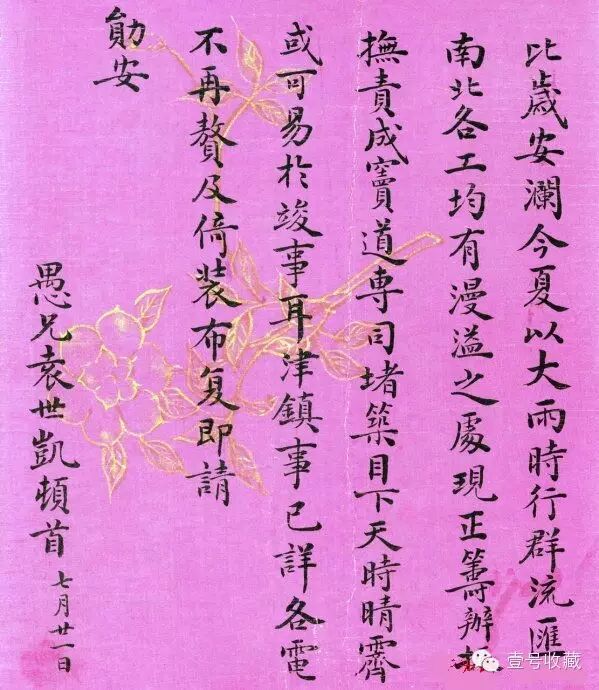 比歲安瀾今夏以大雨時行群流匯
南北各工均有漫溢之處現正籌辦
撫責成竇道專司堵築目下天時晴霽
或可易於竣事耳津鎮事已詳各電
不再贅及倚裝布复即請
勛安
愚兄袁世凱頓首 七月廿一日
壹号收藏